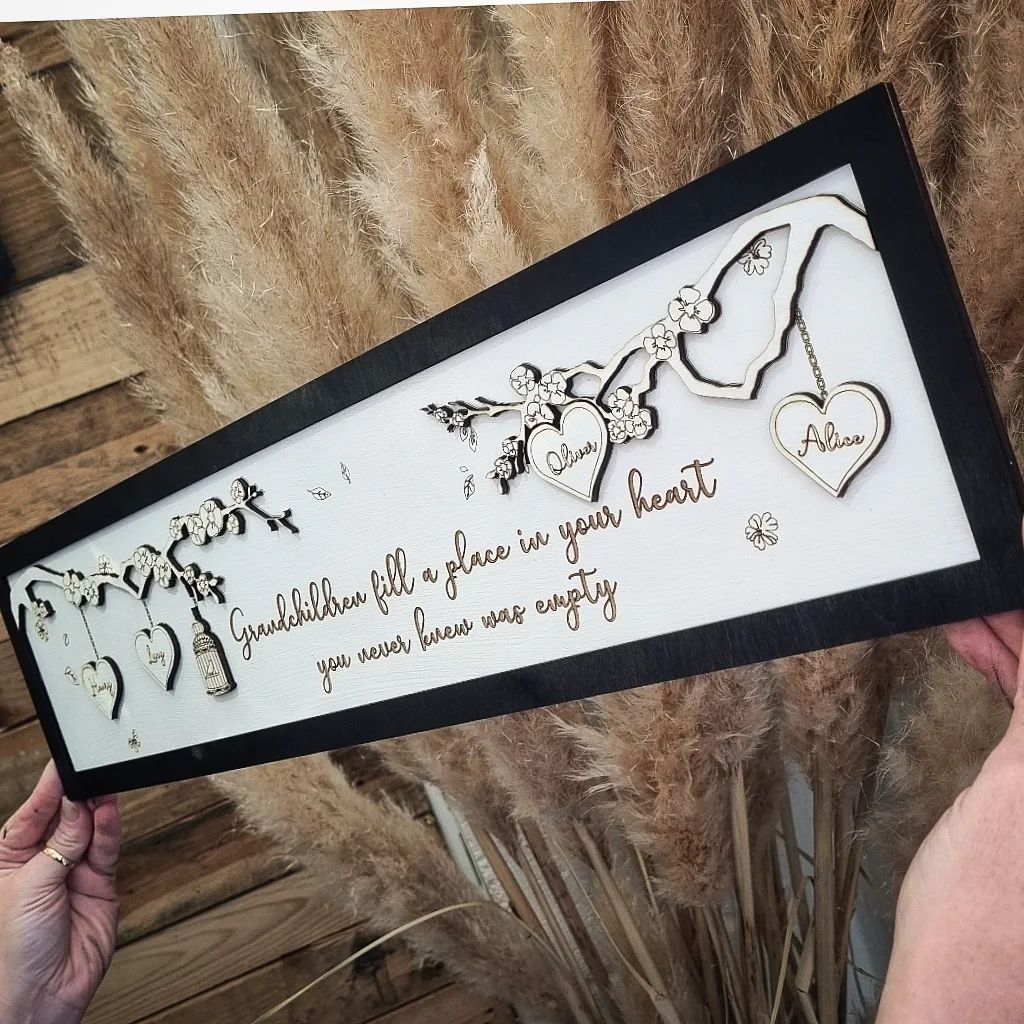 Grandchildren fill a place in your heart
you never knew was empty
Harry
Lucy
Oliver
Alice